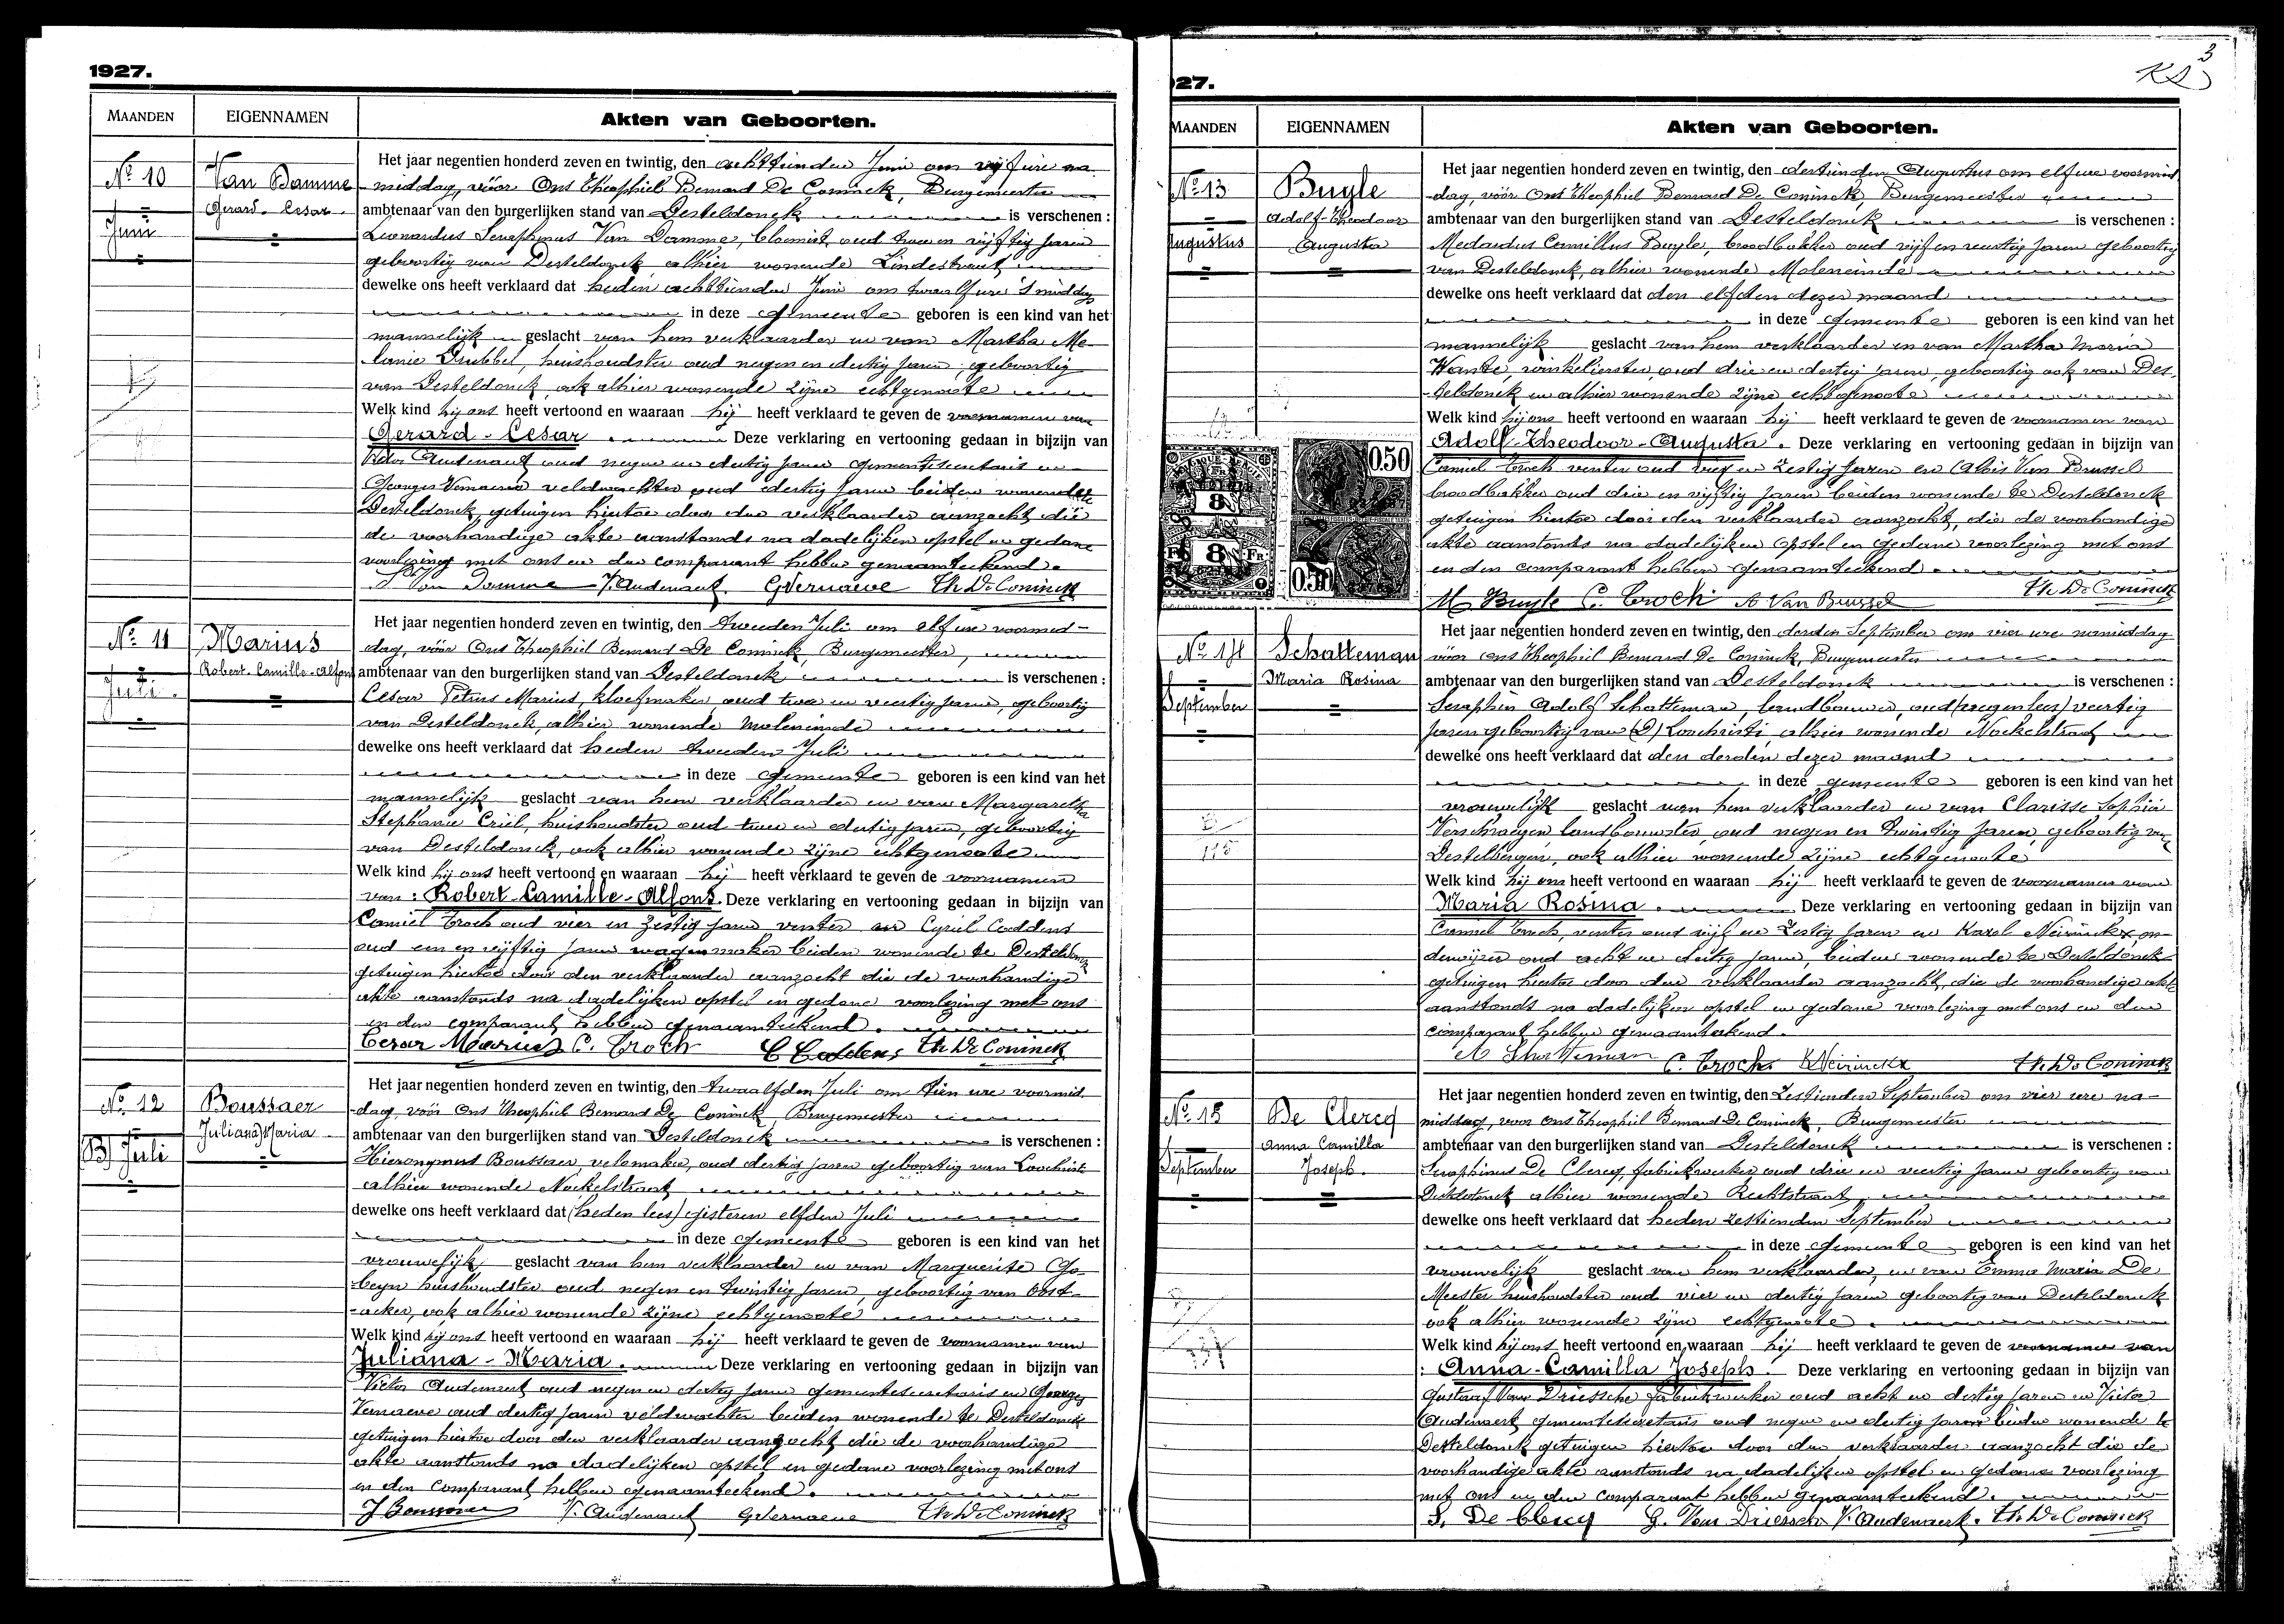 1927.
MAANDEN
EIGENNAMEN
Akten van Geboorten.
No 10
Juni
Van Damme
Gerard - Cesar.
Het jaar negentien honderd zeven en twintig, den achttienden Juni om vijf ure na
middag, vóór Ons Theophiel Bernard De Coninck, Burgemeester
ambtenaar van den burgerlijken stand van Desteldonck is verschenen :
Leonardus Seraphinus Van Damme, bloemist, oud twee en vijftig jaren
geboortig van Desteldonck alhier wonende Lindestraat
dewelke ons heeft verklaard dat heden achttienden Juni om twaalf ure 's middags
in deze gemeente geboren is een kind van het
mannelijk geslacht van hem verklaarder en van Martha Me-
lanie Drubbel, huishoudster oud negen en dertig jaren, geboortig
van Desteldonck, ook alhier wonende zijne echtgenoote
Welk kind hij ons heeft vertoond en waaraan hij heeft verklaard te geven de voornamen van
Gerard - Cesar. Deze verklaring en vertooning gedaan in bijzijn van
Victor Audenaert oud negen en dertig jaren gemeentesecretaris en
Georges Vernaeve veldwachter oud dertig jaren beiden wonende te
Desteldonck, getuigen hiertoe door den verklaarder aanzocht die
de voorhandige akte aanstonds na dadelijken opstel en gedane
voorlezing met ons en den comparant hebben genaamteekend.
Van Damme V. Audenaert. G Vernaeve Th De Coninck
No 11
Juli.
Marius
Robert-Camille-Alfons
Het jaar negentien honderd zeven en twintig, den tweeden Juli om elf ure voormid-
dag, vóór Ons Theophiel Bernard De Coninck, Burgemeester,
ambtenaar van den burgerlijken stand van Desteldonck is verschenen :
Cesar Petrus Marius, kloefmaker, oud twee en veertig jaren, geboortig
van Desteldonck, alhier wonende Moleneinde
dewelke ons heeft verklaard dat heden tweeden Juli
in deze gemeente geboren is een kind van het
mannelijk geslacht van hem verklaarder en van Margaretha
Stephanie Criel, huishoudster oud twee en dertig jaren, geboortig
van Desteldonck, ook alhier wonende zijne echtgenoote
Welk kind hij ons heeft vertoond en waaraan hij heeft verklaard te geven de voornamen
van : Robert-Camille-Alfons. Deze verklaring en vertooning gedaan in bijzijn van
Camiel Croch oud vier en zestig jaren renter en Cyriel Coddens
oud een en vijftig jaren wagenmaker beiden wonende te Desteldonck
getuigen hiertoe door den verklaarder aanzocht die de voorhandige
akte aanstonds na dadelijken opstel en gedane voorlezing met ons
en den comparant hebben genaamteekend.
Cesar Marius C. Croch C Coddens Th De Coninck
No 12
(B) Juli
Boussaer
Juliana Maria
Het jaar negentien honderd zeven en twintig, den twaalfden Juli om tien ure voormid-
dag, vóór Ons Theophiel Bernard De Coninck, Burgemeester
ambtenaar van den burgerlijken stand van Desteldonck is verschenen :
Hieronymus Boussaer, velomaker, oud dertig jaren geboortig van Loochristi
alhier wonende Nockelstraat
dewelke ons heeft verklaard dat (heden lees) gisteren elfden Juli
in deze gemeente geboren is een kind van het
vrouwelijk geslacht van hem verklaarder en van Marguerite Go-
beyn huishoudster oud negen en twintig jaren, geboortig van Oost-
acker, ook alhier wonende zijne echtgenoote
Welk kind hij ons heeft vertoond en waaraan hij heeft verklaard te geven de voornamen van
Juliana - Maria. Deze verklaring en vertooning gedaan in bijzijn van
Victor Audenaert oud negen en dertig jaren gemeentesecretaris en Georges
Vernaeve oud dertig jaren veldwachter beiden wonende te Desteldonck
getuigen hiertoe door den verklaarder aanzocht die de voorhandige
akte aanstonds na dadelijken opstel en gedane voorlezing met ons
en den comparant hebben genaamteekend.
V. Audenaert G Vernaeve Th De Coninck
3
27.
MAANDEN
EIGENNAMEN
Akten van Geboorten.
No 13
Augustus
Buyle
Adolf-Theodoor
Augusta
Het jaar negentien honderd zeven en twintig, den dertienden Augustus om elf ure voormid-
dag, vóór Ons Theophiel Bernard De Coninck, Burgemeester
ambtenaar van den burgerlijken stand van Desteldonck is verschenen :
Medardus Camillus Buyle, broodbakker oud vijf en veertig jaren geboortig
van Desteldonck, alhier wonende Moleneinde
dewelke ons heeft verklaard dat den elfden dezer maand
in deze gemeente geboren is een kind van het
mannelijk geslacht van hem verklaarder en van Martha Maria
Wante, winkelierster, oud drie en dertig jaren, geboortig ook van Des-
teldonck en alhier wonende zijne echtgenoote
Welk kind hij ons heeft vertoond en waaraan hij heeft verklaard te geven de voornamen van
Adolf-Theodoor-Augusta. Deze verklaring en vertooning gedaan in bijzijn van
Camiel Croch renter oud vier en zestig jaren en Aloïs Van Brussel
broodbakker oud drie en vijftig jaren beiden wonende te Desteldonck
getuigen hiertoe door den verklaarder aanzocht, die de voorhandige
akte aanstonds na dadelijken opstel en gedane voorlezing met ons
en den comparant hebben genaamteekend.
M Buyle C. Croch A Van Brussel Th De Coninck
0.50
8
FR
8
FR.
0.50
No 14
September
Schatteman
Maria Rosina
Het jaar negentien honderd zeven en twintig, den derden September om vier ure namiddag
vóór Ons Theophiel Bernard De Coninck, Burgemeester
ambtenaar van den burgerlijken stand van Desteldonck is verschenen :
Seraphin Adolf Schatteman, landbouwer, oud (negen lees) veertig
jaren geboortig van (D) Loochristi, alhier wonende Nockelstraat
dewelke ons heeft verklaard dat den derden dezer maand
in deze gemeente geboren is een kind van het
vrouwelijk geslacht van hem verklaarder en van Clarisse Sophia
Verschraegen landbouwster, oud negen en twintig jaren, geboortig van
Destelbergen, ook alhier wonende zijne echtgenoote
Welk kind hij ons heeft vertoond en waaraan hij heeft verklaard te geven de voornamen van
Maria Rosina. Deze verklaring en vertooning gedaan in bijzijn van
Camiel Croch, renter oud vijf en zestig jaren en Karel Neirinckx, on-
derwijzer oud acht en dertig jaren, beiden wonende te Desteldonck
getuigen hiertoe door den verklaarder aanzocht, die de voorhandige akte
aanstonds na dadelijken opstel en gedane voorlezing met ons en den
comparant hebben genaamteekend.
A Schatteman C. Croch. K Neirinckx Th De Coninck
No 15
September
De Clercq
Anna Camilla
Joseph.
Het jaar negentien honderd zeven en twintig, den zestienden September om vier ure na-
middag, voor Ons Theophiel Bernard De Coninck, Burgemeester
ambtenaar van den burgerlijken stand van Desteldonck is verschenen :
Seraphinus De Clercq, fabriekwerker oud drie en veertig jaren geboortig van
Desteldonck alhier wonende Rechtstraat
dewelke ons heeft verklaard dat heden zestienden September
in deze gemeente geboren is een kind van het
vrouwelijk geslacht van hem verklaarder, en van Emma Maria De
Meester huishoudster oud vier en dertig jaren geboortig van Desteldonck
ook alhier wonende zijne echtgenoote.
Welk kind hij ons heeft vertoond en waaraan hij heeft verklaard te geven de voornamen van
: Anna-Camilla Joseph. Deze verklaring en vertooning gedaan in bijzijn van
Gustaaf Van Driessche fabriekwerker oud acht en dertig jaren en Victor
Audenaert, gemeentesecretaris oud negen en dertig jaren beiden wonende te
Desteldonck getuigen hiertoe door den verklaarder aanzocht die de
voorhandige akte aanstonds na dadelijken opstel en gedane voorlezing
met ons en den comparant hebben genaamteekend.
S. De Clercq G. Van Driessche V. Audenaert. Th De Coninck